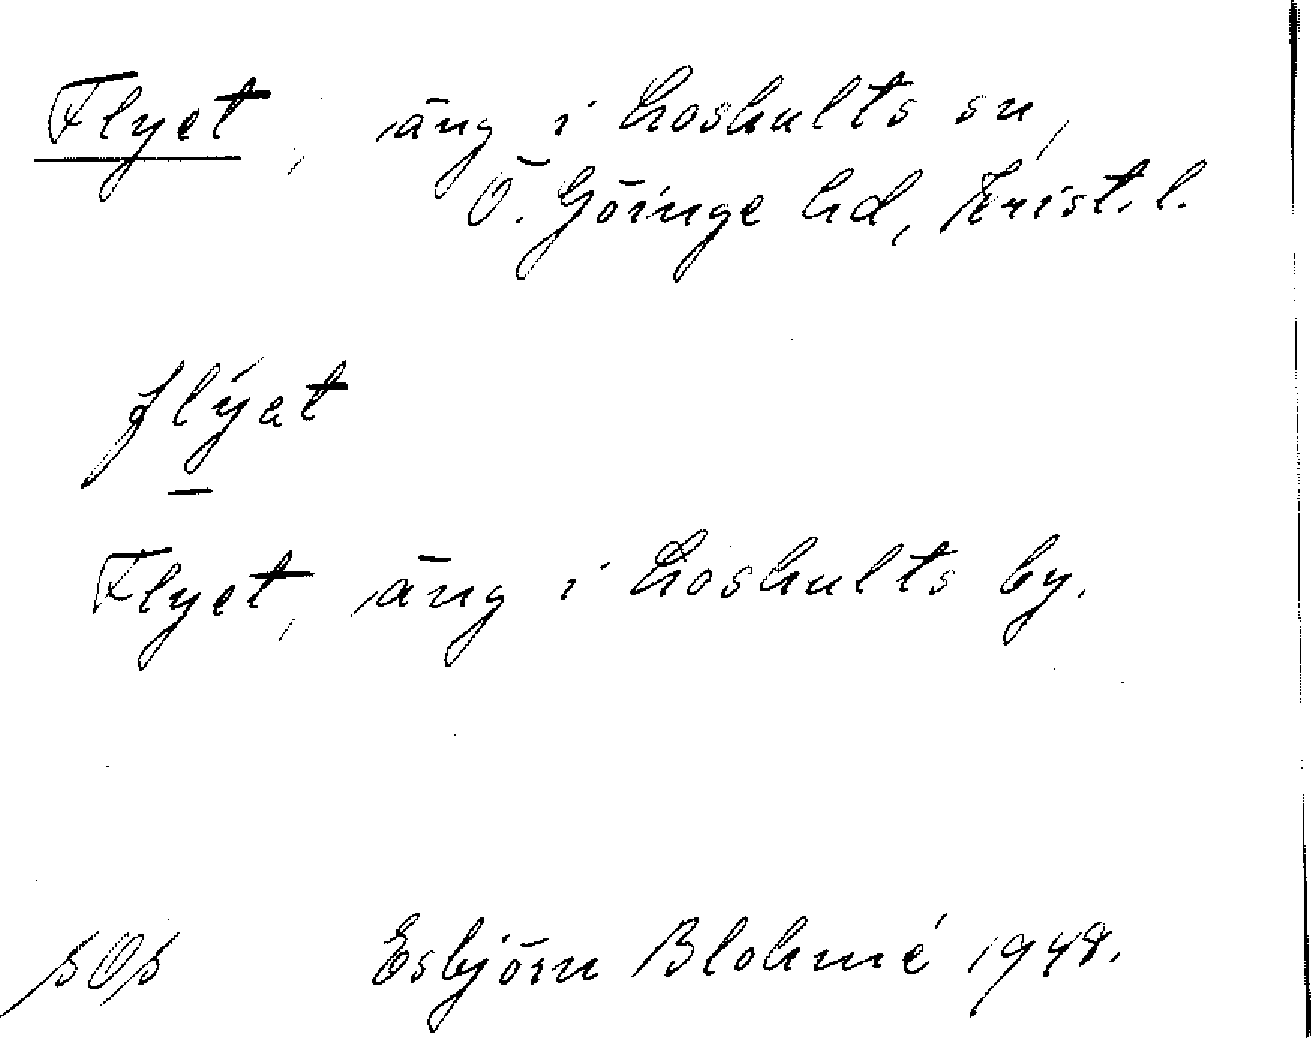 Flyet, äng i Loshults sn,
Ö. Göinge hd, Krist. l.
flýət
Flyet, äng i Loshults by.
Esbjörn Blohmé 1948.